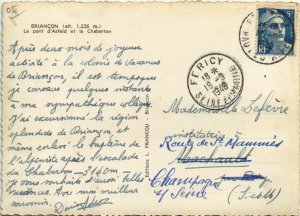 05
BRIANÇON (alt. 1.326 m.)
Le pont d'Asfeld et le Chaberton
Après deux mois de joyeuse
activité à la colonie de Vacances
de Briançon, il est temps que
je consacre quelques instants
à ma sympathique collègue.
J'ai excursionné la région
splendide de Briançon et
même enlevé le baptême de
l'alpiniste après l'escalade
du Chaberton - 3140m.
Je vous souhaite Vacances
Mon meilleur
souvenir.
Editions L. FRANCOU
FERICY
18 *
SEINE ET MARNE
RF
Mademoiselle Lefèvre
institutrice
Route de St Mammès
Machault
Champagne
s/ Seine
(S. et M)